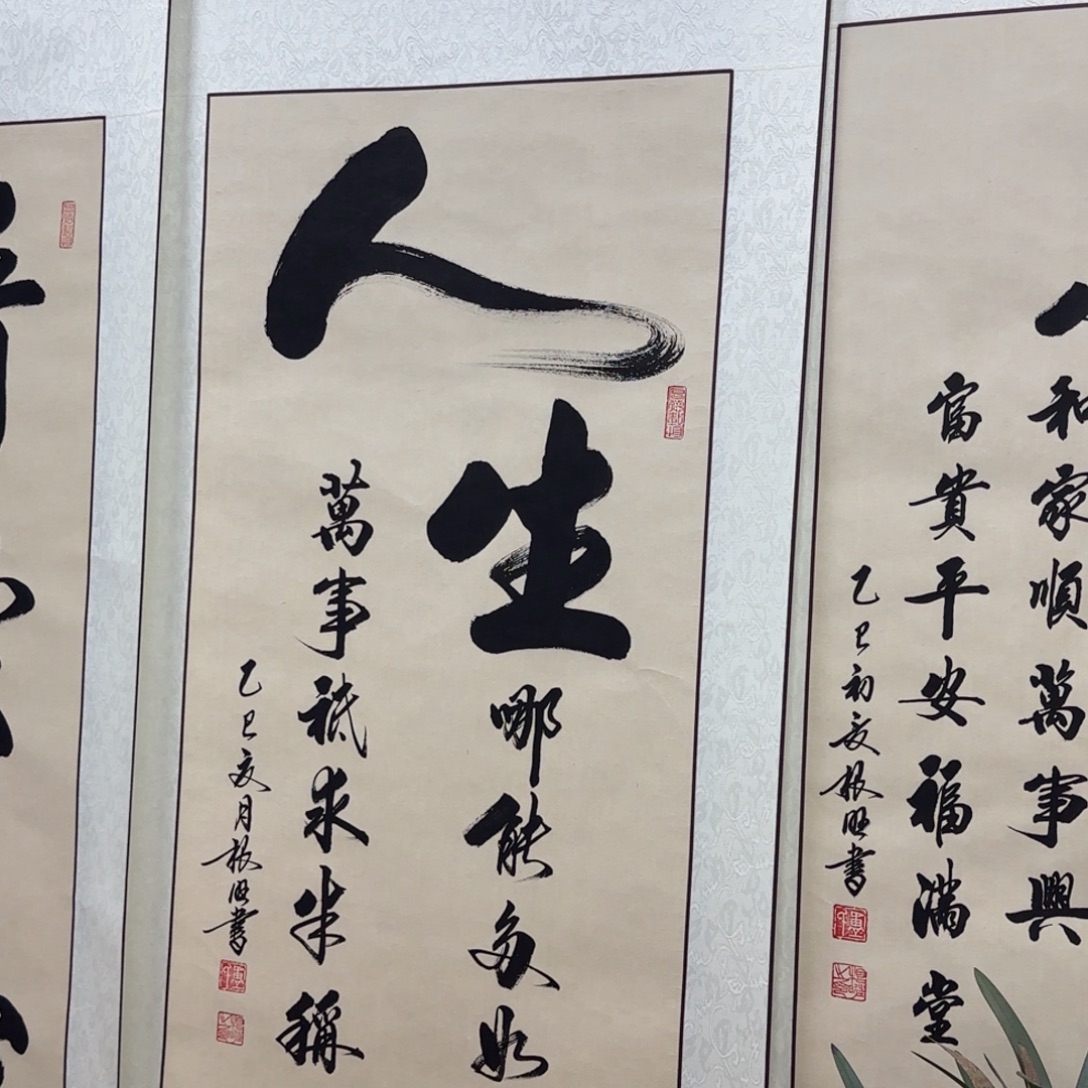 人和家順萬事興
富貴平安福滿堂
乙巳初夏書
人生哪能多如
萬事祇求半稱
乙巳夏月書